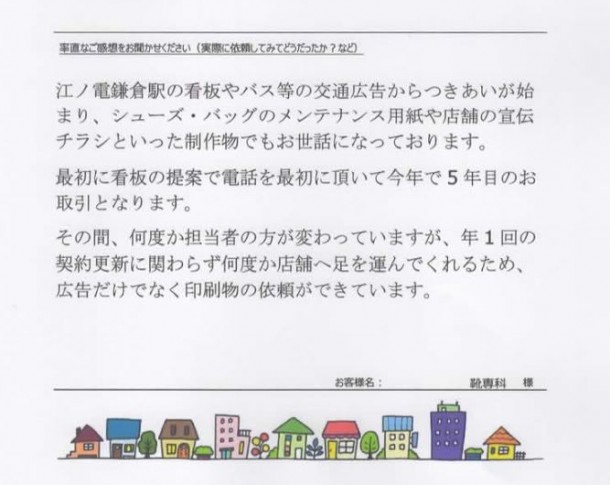 率直なご感想をお聞かせください（実際に依頼してみてどうだったか？など）
江ノ電鎌倉駅の看板やバス等の交通広告からつきあいが始
まり、シューズ・バッグのメンテナンス用紙や店舗の宣伝
チラシといった制作物でもお世話になっております。
最初に看板の提案で電話を最初に頂いて今年で 5 年目のお
取引となります。
その間、何度か担当者の方が変わっていますが、年 1 回の
契約更新に関わらず何度か店舗へ足を運んでくれるため、
広告だけでなく印刷物の依頼ができています。
お客様名： 靴専科 様